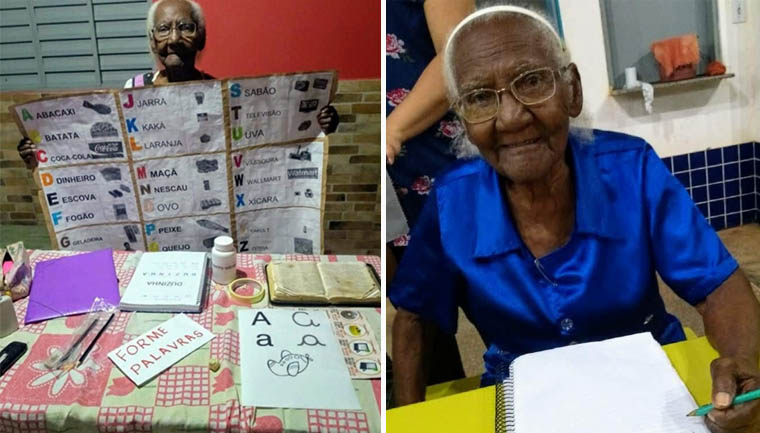 A ABACAXI
BATATA
C COCA-COLA
D DINHEIRO
E ESCOVA
F FOGÃO
G GELADEIRA
J JARRA
K KAKÁ
L LARANJA
M MAÇÃ
N NESCAU
O OVO
P PEIXE
QUEIJO
S SABÃO
T TELEVISÃO
U UVA
V VASSOURA
W WALMART
Walmart
X XÍCARA
Y YAKULT
Z
DUZINHA
FORME
PALAVRAS
A a
a a